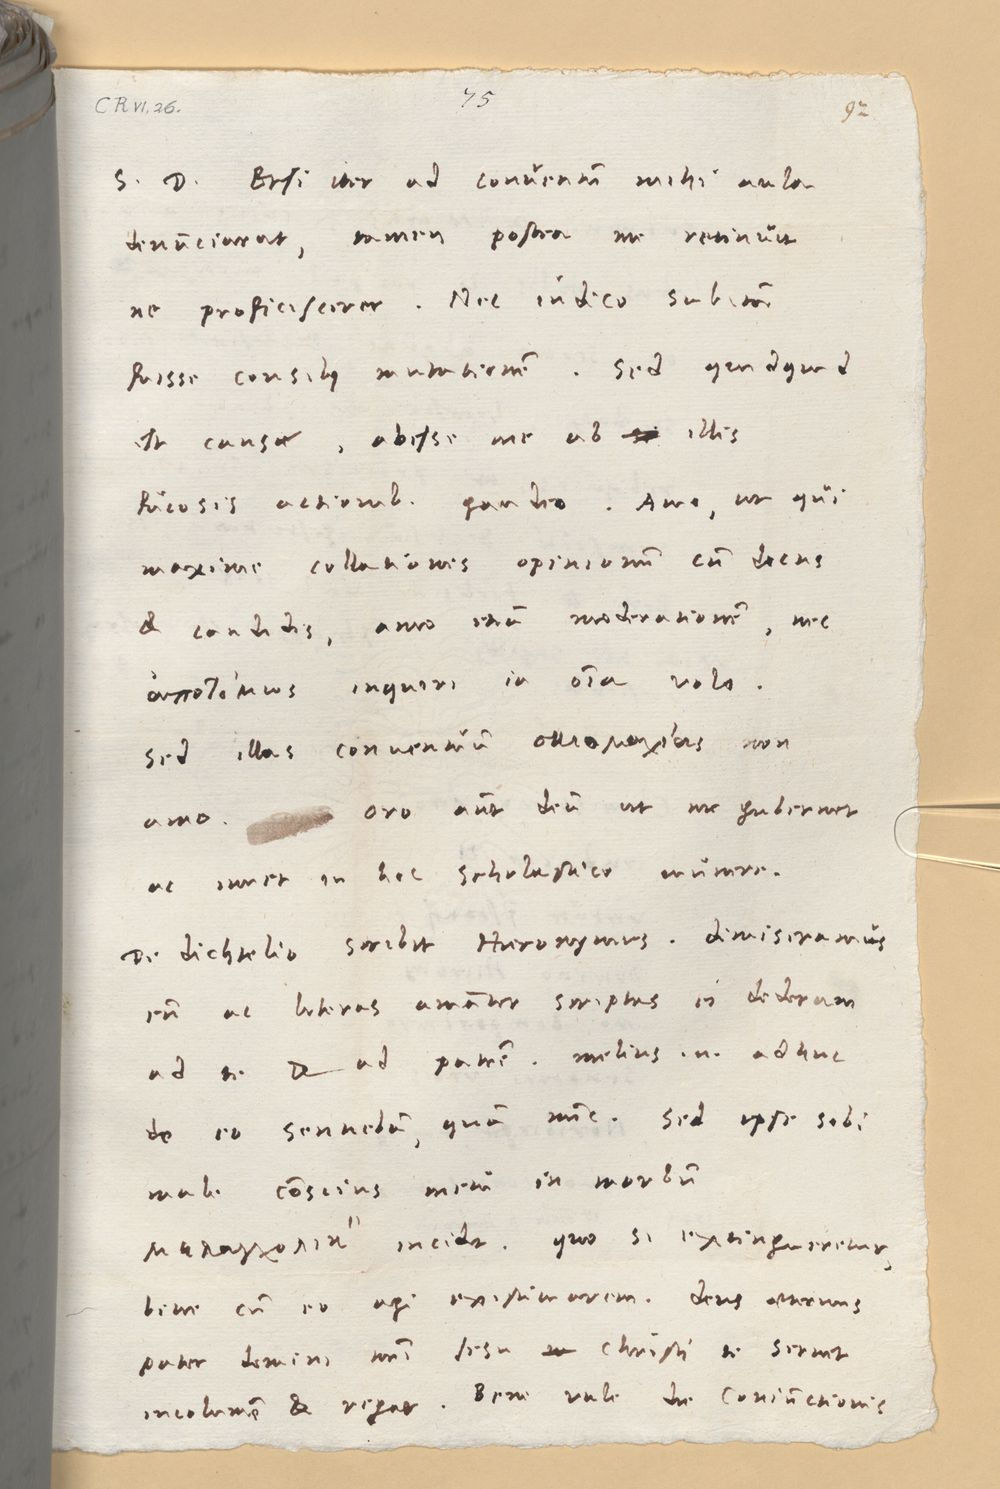 CR VI, 26.
75
92
S. D. Etsi iter ad conventū mihi aula
denūciarat, tamen postea me retinuit
ne proficiscerer. Nec iudico subitā
fuisse consilij mutationē. Sed quidquid
est causae, abesse me ab illis
fucosis actionib. gaudeo. Amo, ut qui
maxime collationes opinionū cū doctis
& candidis, amo etiā moderationē, nec
ἀποτόμως inquiri in oīa volo.
Sed illas conventuū σκιομαχίας non
amo. Oro aūt deū ut me gubernet
ac iuvet in hoc scholastico munere.
De dichtelio scribit Hieronymus. dimiseramus
eū ac literas amāter scriptas ei dederam
ad te & ad patrē. melius .n. adhuc
de eo sentiebā, quā nūc. Sed ipse sibi
male cōscius metu in morbū
μελαγχολικὸν incidit. quo si extingueretur,
bene cū eo agi existimarem. deus aeternus
pater domini nrī Jesu Christi te servet
incolumē & regat. Bene vale die Coniūctionis